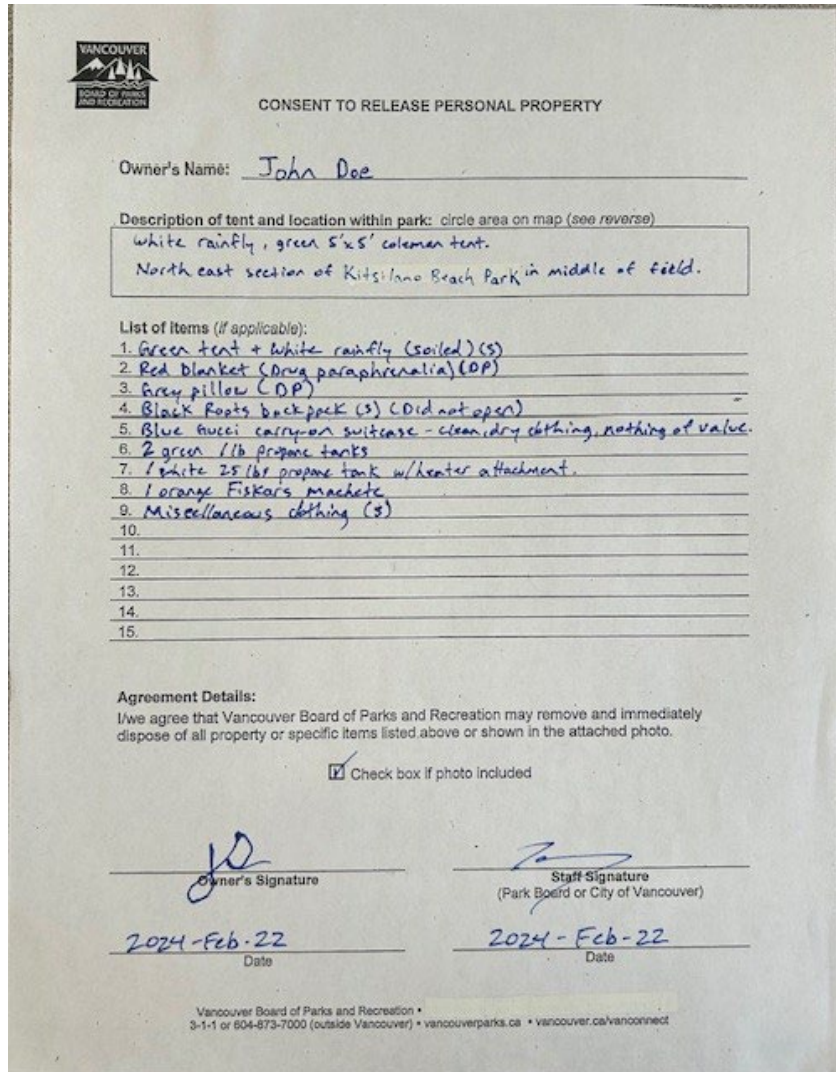 VANCOUVER
BOARD OF PARKS
AND RECREATION
CONSENT TO RELEASE PERSONAL PROPERTY
Owner's Name: John Doe
Description of tent and location within park: circle area on map (see reverse)
White rainfly, green 5'x5' coleman tent.
North east section of Kitsilano Beach Park in middle of field.
List of Items (if applicable):
1. Green tent + white rainfly (soiled) (S)
2. Red blanket (Drug paraphrenalia) (DP)
3. Grey pillow (DP)
4. Black Roots backpack (S) (Did not open)
5. Blue Gucci carry-on suitcase - clean, dry clothing, nothing of value.
6. 2 green 1lb propane tanks
7. 1 white 25 lbs propane tank w/heater attachment.
8. 1 orange Fiskars machete
9. Miscellaneous clothing (S)
10.
11.
12.
13.
14.
15.
Agreement Details:
I/we agree that Vancouver Board of Parks and Recreation may remove and immediately
dispose of all property or specific items listed above or shown in the attached photo.
Check box if photo included
JD
Owner's Signature
Staff Signature
(Park Board or City of Vancouver)
2024-Feb-22
Date
2024-Feb-22
Date
Vancouver Board of Parks and Recreation •
3-1-1 or 604-873-7000 (outside Vancouver) • vancouverparks.ca • vancouver.ca/vanconnect